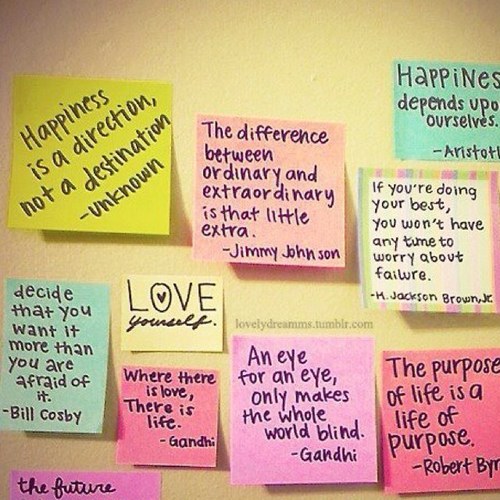 Happiness
is a direction,
not a destination
-unknown
The difference
between
ordinary and
extraordinary
is that little
extra.
-Jimmy Johnson
HAPPINES
depends upo
ourselves.
-Aristotl
If you're doing
your best,
you won't have
any time to
worry about
failure.
-H. Jackson Brown, Jr.
decide
that you
want it
more than
you are
afraid of
it.
-Bill Cosby
LOVE
yourself.
lovelydreamms.tumblr.com
Where there
is love,
There is
life.
-Gandhi
An eye
for an eye,
only makes
the whole
world blind.
-Gandhi
The purpose
of life is a
life of
purpose.
-Robert Byr
the future